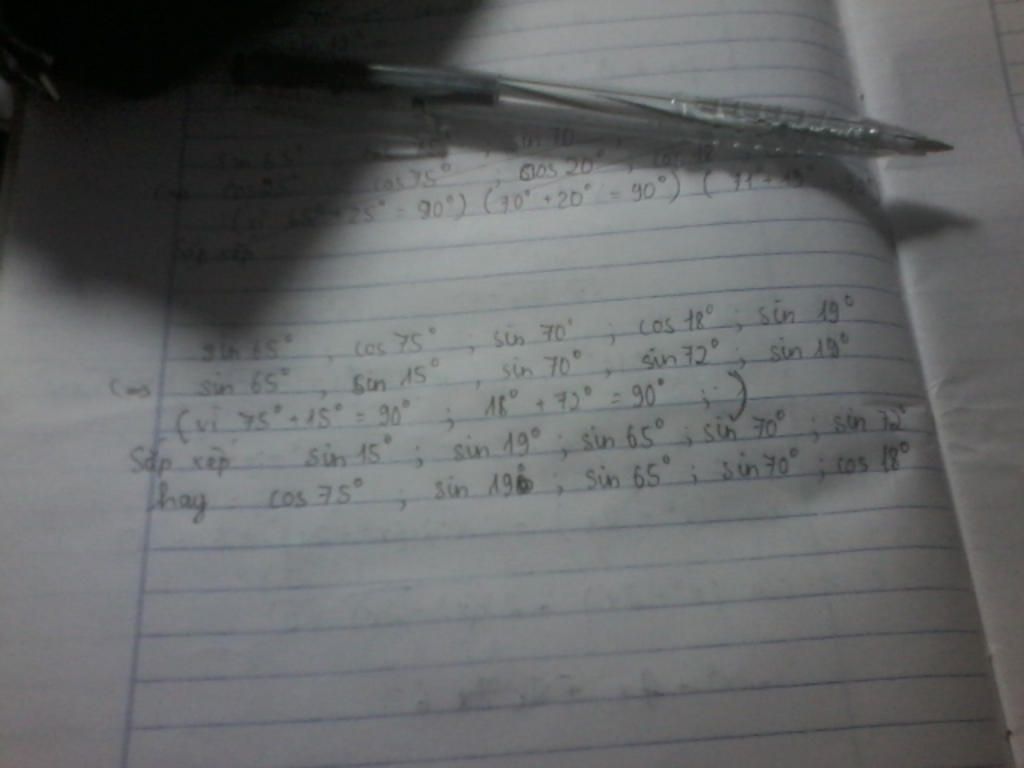 sin 65° sin 70
cos 75° ; cos 20° ; cos 18
(vì 65° + 25° = 90°) (70° + 20° = 90°) (
Sắp xếp
sin 65° ; cos 75° ; sin 70° ; cos 18° ; sin 19°
sin 65° ; sin 15° ; sin 70° ; sin 72° ; sin 19°
(vì 75° + 15° = 90° ; 18° + 72° = 90° ; )
Sắp xếp sin 15° ; sin 19° ; sin 65° ; sin 70° ; sin 72°
hay cos 75° ; sin 19° ; sin 65° ; sin 70° ; cos 18°